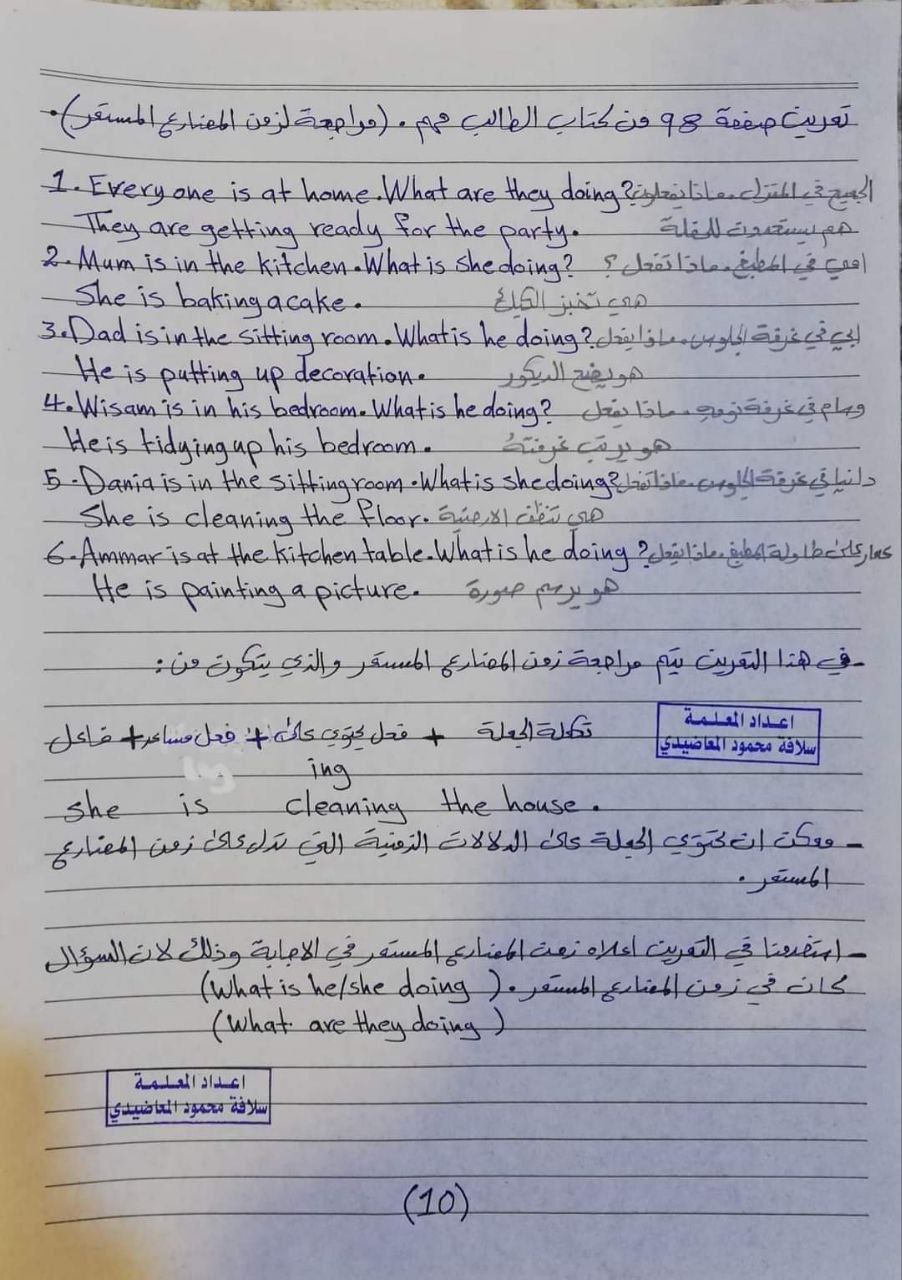 تمرين صفحة 98 من كتاب الطالب مهم. (مراجعة لزمن المضارع المستمر).
1. Everyone is at home. What are they doing? الجميع في المنزل. ماذا يفعلون؟
They are getting ready for the party. هم يستعدون للحفلة
2. Mum is in the kitchen. What is she doing? امي في المطبخ. ماذا تفعل؟
She is baking a cake. هي تخبز الكيك
3. Dad is in the sitting room. What is he doing? ابي في غرفة الجلوس. ماذا يفعل
He is putting up decoration. هو يضع الديكور
4. Wisam is in his bedroom. What is he doing? وسام في غرفة نومه. ماذا يفعل
He is tidying up his bedroom. هو يرتب غرفتهُ
5. Dania is in the sitting room. What is she doing? دانيا في غرفة الجلوس. ماذا تفعل
She is cleaning the floor. هي تنظف الارضية
6. Ammar is at the kitchen table. What is he doing? عمار على طاولة المطبخ. ماذا يفعل
He is painting a picture. هو يرسم صورة
- في هذا التمرين يتم مراجعة زمن المضارع المستمر والذي يتكون من:
اعداد المعلمة
سلافة محمود المعاضيدي
تكملة الجملة + فعل يحتوي على + فعل مساعد + فاعل
ing
she is cleaning the house.
- ممكن ان تحتوي الجملة على الدلالات الزمنية التي تدل على زمن المضارع
المستمر.
- استخدمنا في التمرين اعلاه زمن المضارع المستمر في الاجابة وذلك لان السؤال
كان في زمن المضارع المستمر. (What is he/she doing)
(What are they doing)
اعداد المعلمة
سلافة محمود المعاضيدي
(10)